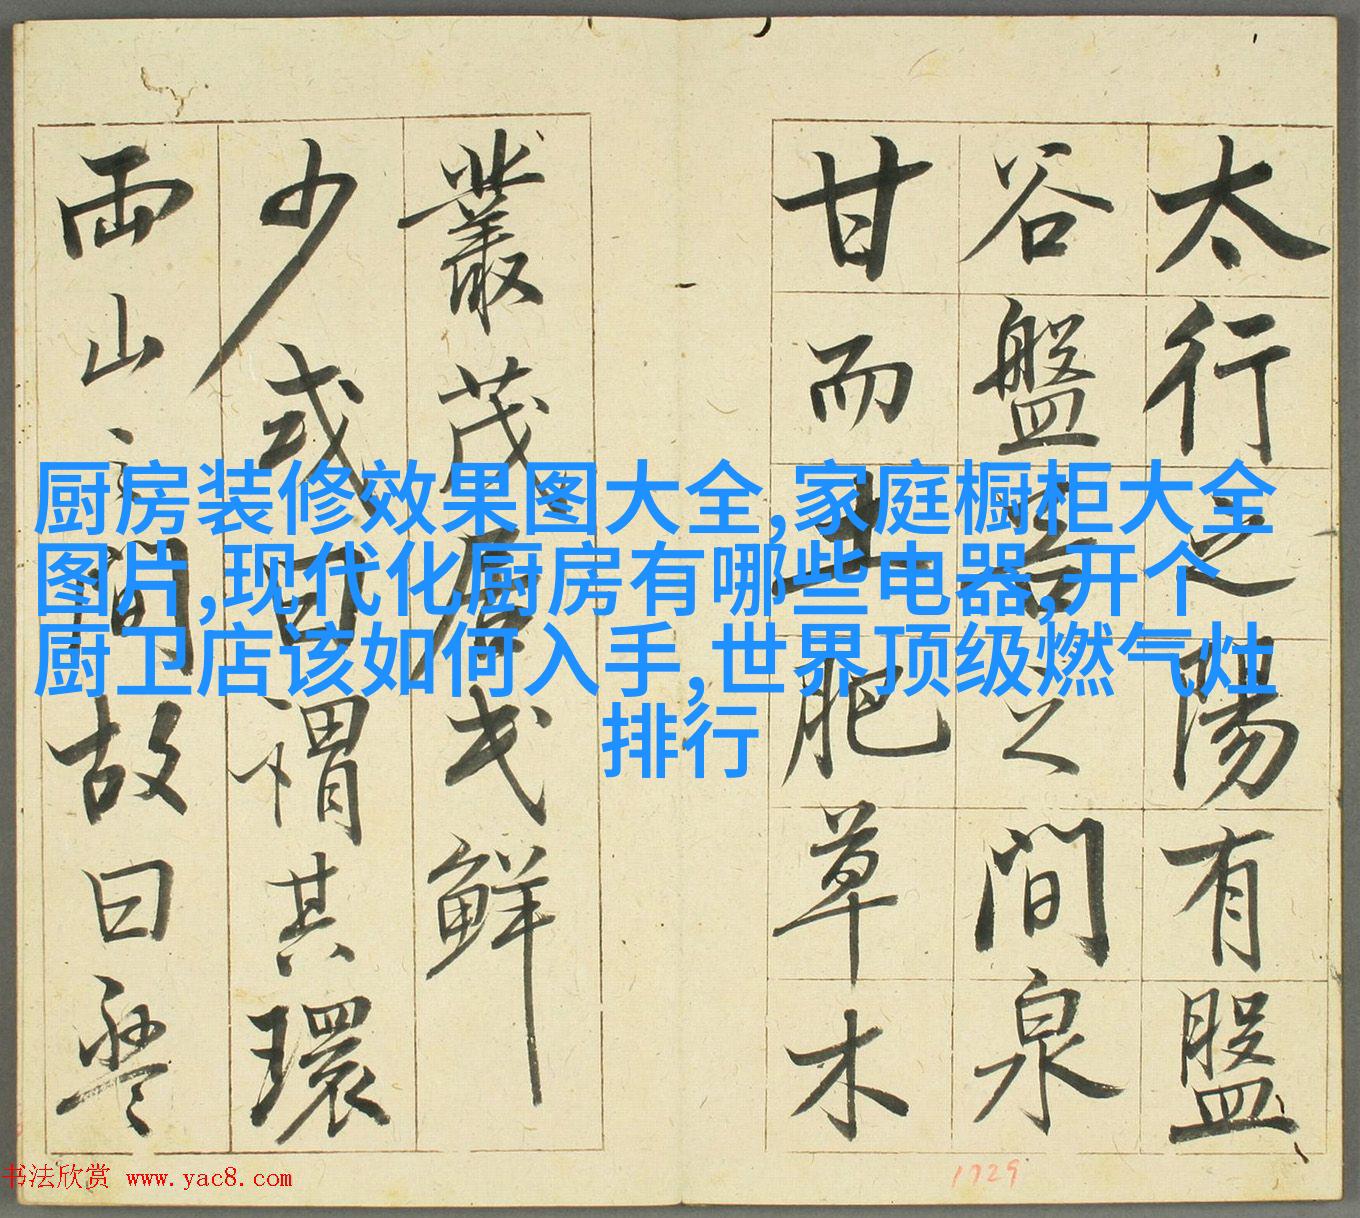 太行之陽有盤
谷盤谷之間泉
甘而土肥草木
叢茂居民鮮
少或曰謂其環
兩山之間故曰盤
厨房装修效果图大全,家庭橱柜大全
图片,现代化厨房有哪些电器,开个
厨卫店该如何入手,世界顶级燃气灶
排行
书法欣赏 www.yac8.com
1729